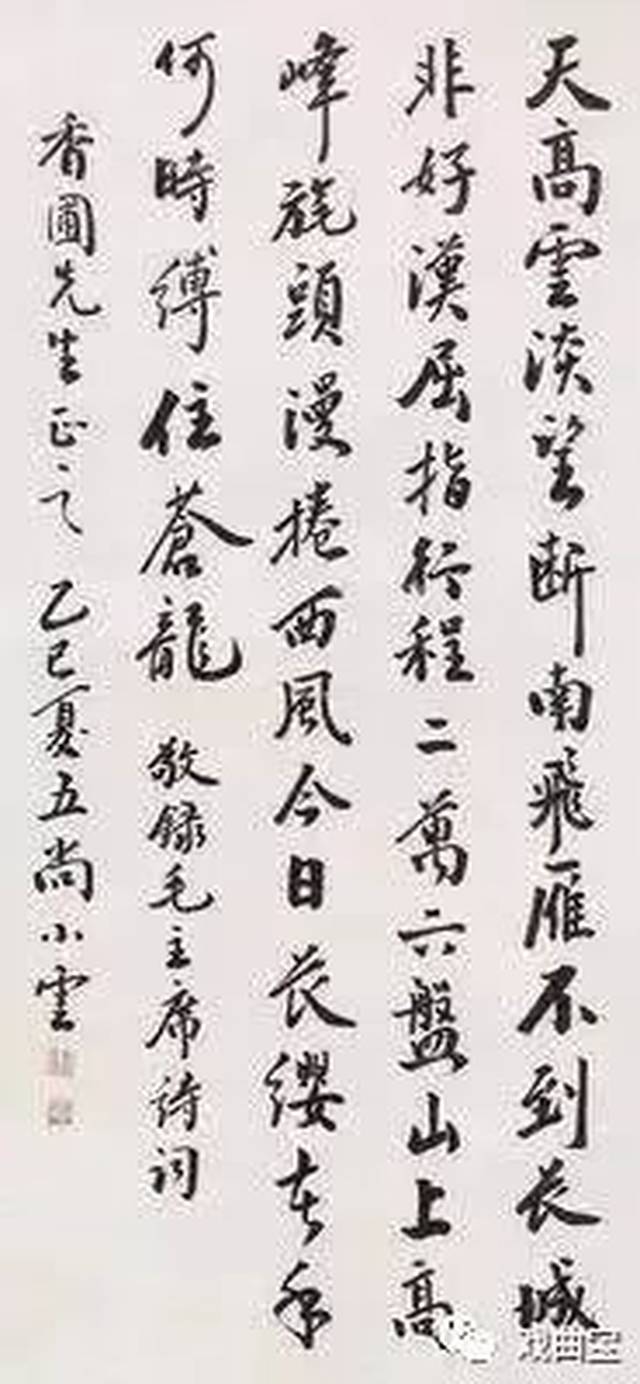 天高雲淡望断南飛雁不到長城
非好漢屈指行程二萬六盤山上高
峰旄頭漫捲西風今日長纓在手
何時縛住蒼龍 敬録毛主席詩詞
香圃先生正之 乙巳夏五尚小雲
戏曲宝